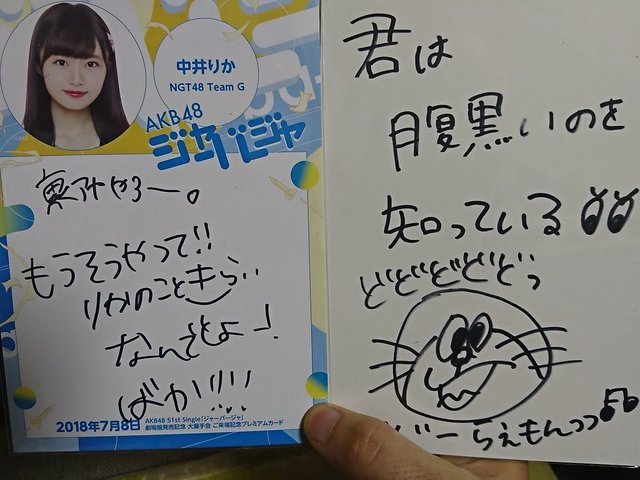 中井りか
NGT48 Team G
AKB48
ジャーバージャ
もうそうやって!!
りかのこときらい
なんでしょー!
ばか!!!!
2018年7月8日
AKB48 51st Single「ジャーバージャ」
劇場盤発売記念 大握手会 ご来場記念プレミアムカード
君は
腹黒いのを
知っている
どどどどどっ
どーらえもんっっ♫